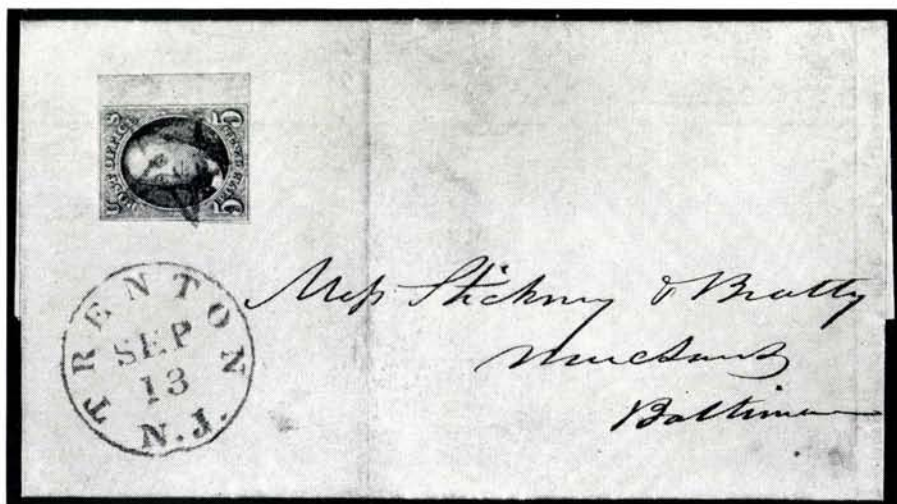 U POST OFFICE S
5 FIVE CENTS 5
TRENTON
SEP
13
N.J.
Mess Stickney & Beatty
Merchants
Baltimore